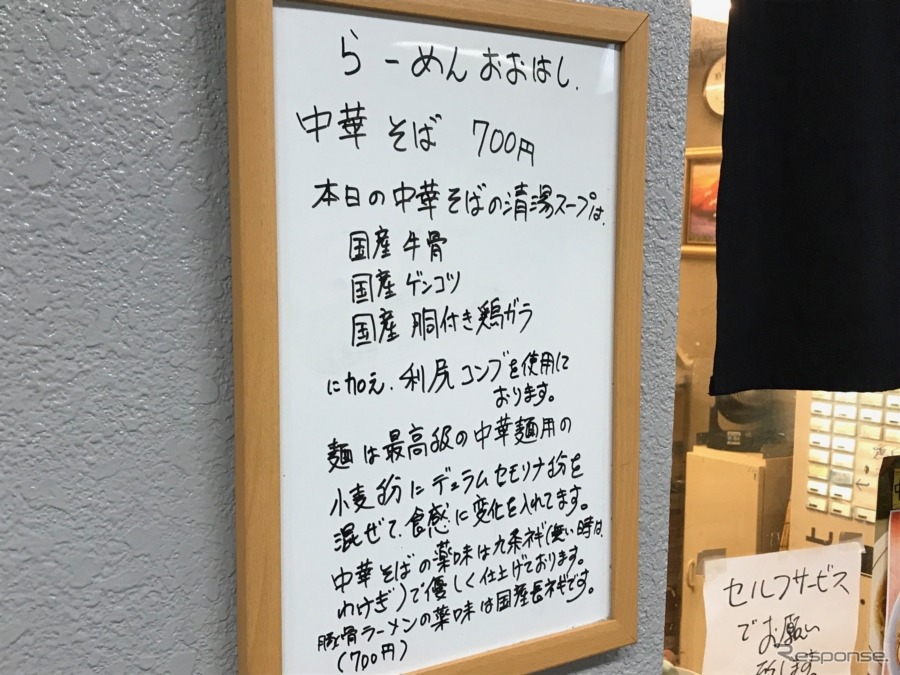 らーめんおおはし.
中華そば 700円
本日の中華そばの清湯スープは、
国産 牛骨
国産 ゲンコツ
国産 胴付き鶏ガラ
に加え、利尻コンブを使用して
おります。
麺は最高級の中華麺用の
小麦粉にデュラムセモリナ粉を
混ぜて、食感に変化を入れてます。
中華そばの薬味は九条ネギ(無い時は、
わけぎ)で優しく仕上げております。
豚骨ラーメンの薬味は国産長ネギです。
(700円)
セルフサービス
でお願い
致します。
Response.